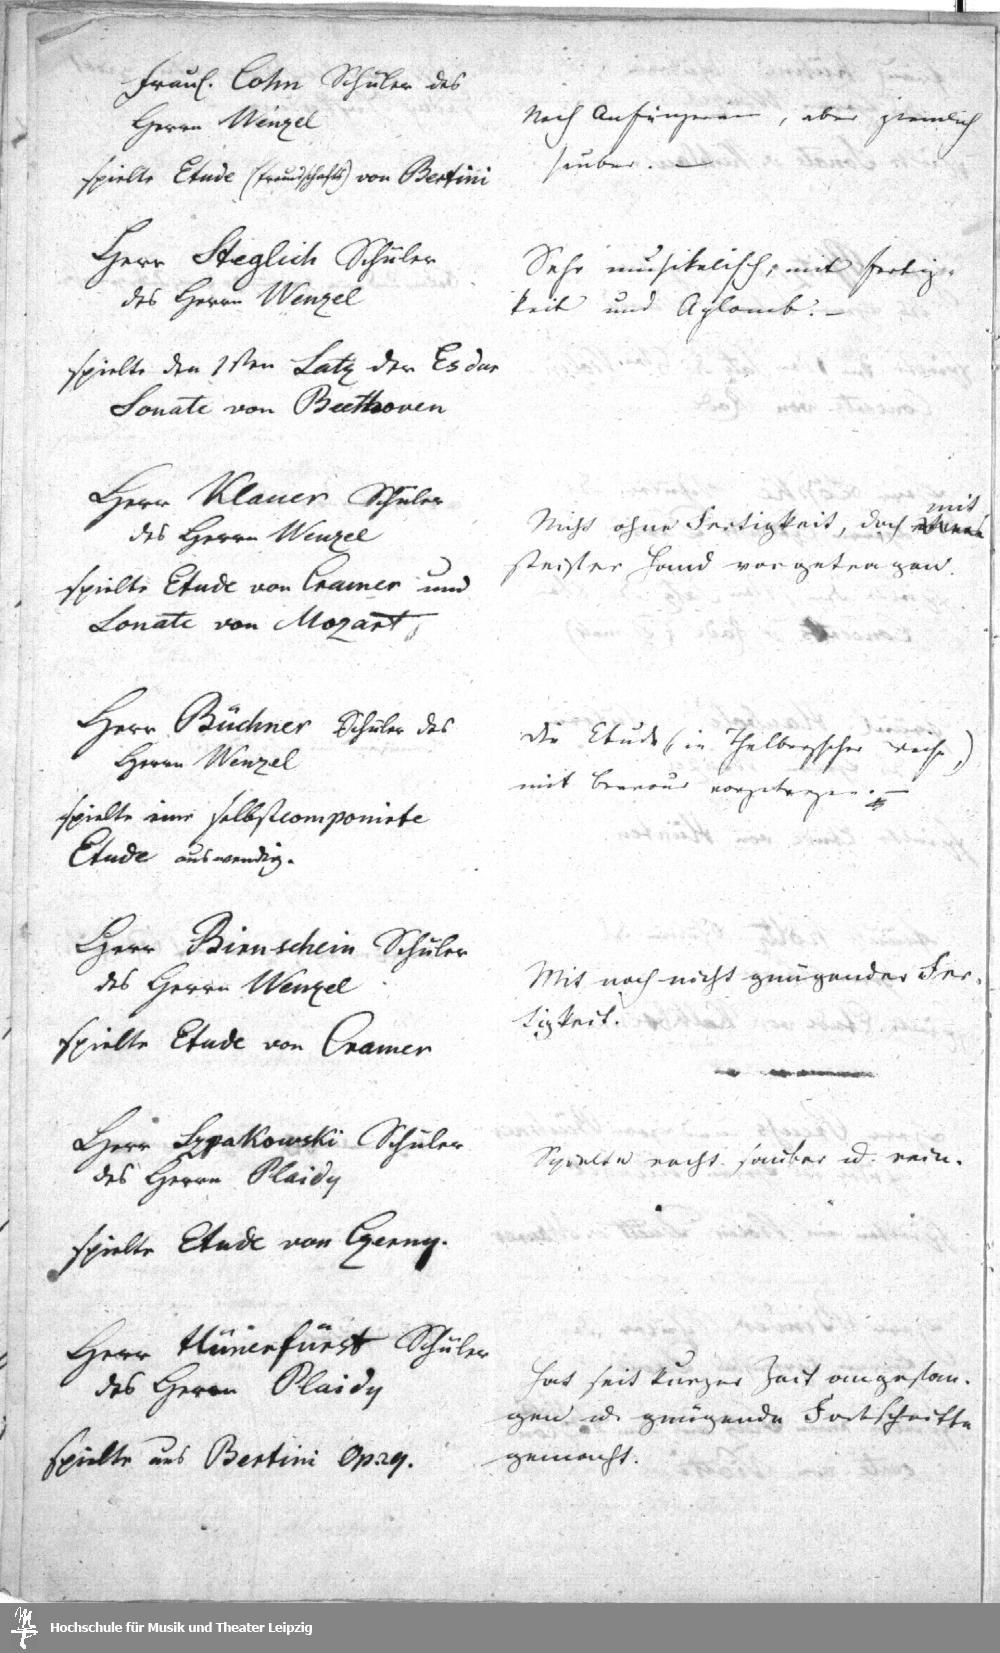 Fräul. Cohn Schüler des
Herrn Wenzel
spielte Etude (freundschafts) von Bertini
Noch Anfängerin, aber ziemlich
sauber. —
Herr Steglich Schüler
des Herrn Wenzel
spielte den 1sten Satz der Es dur
Sonate von Beethoven
Sehr musikalisch, mit Fertig-
keit und Aplomb. —
Herr Klauer Schüler
des Herrn Wenzel
spielte Etude von Cramer und
Sonate von Mozart
Nicht ohne Fertigkeit, doch mit
steifer Hand vorgetragen.
Herr Büchner Schüler des
Herrn Wenzel
spielte eine selbstcomponirte
Etude auswendig.
Die Etude (in Thalbergscher Weise)
mit Bravour vorgetragen. —
Herr Bienschein Schüler
des Herrn Wenzel
spielte Etude von Cramer
Mit noch nicht gnügender Fer-
tigkeit.
Herr Sypakowski Schüler
des Herrn Plaidy
spielte Etude von Czerny.
Spielte recht sauber u. rein.
Herr Hünerfürst Schüler
des Herrn Plaidy
spielte aus Bertini Op 29.
Hat seit kurzer Zeit angefan-
gen u. gnügende Fortschritte
gemacht.
Hochschule für Musik und Theater Leipzig